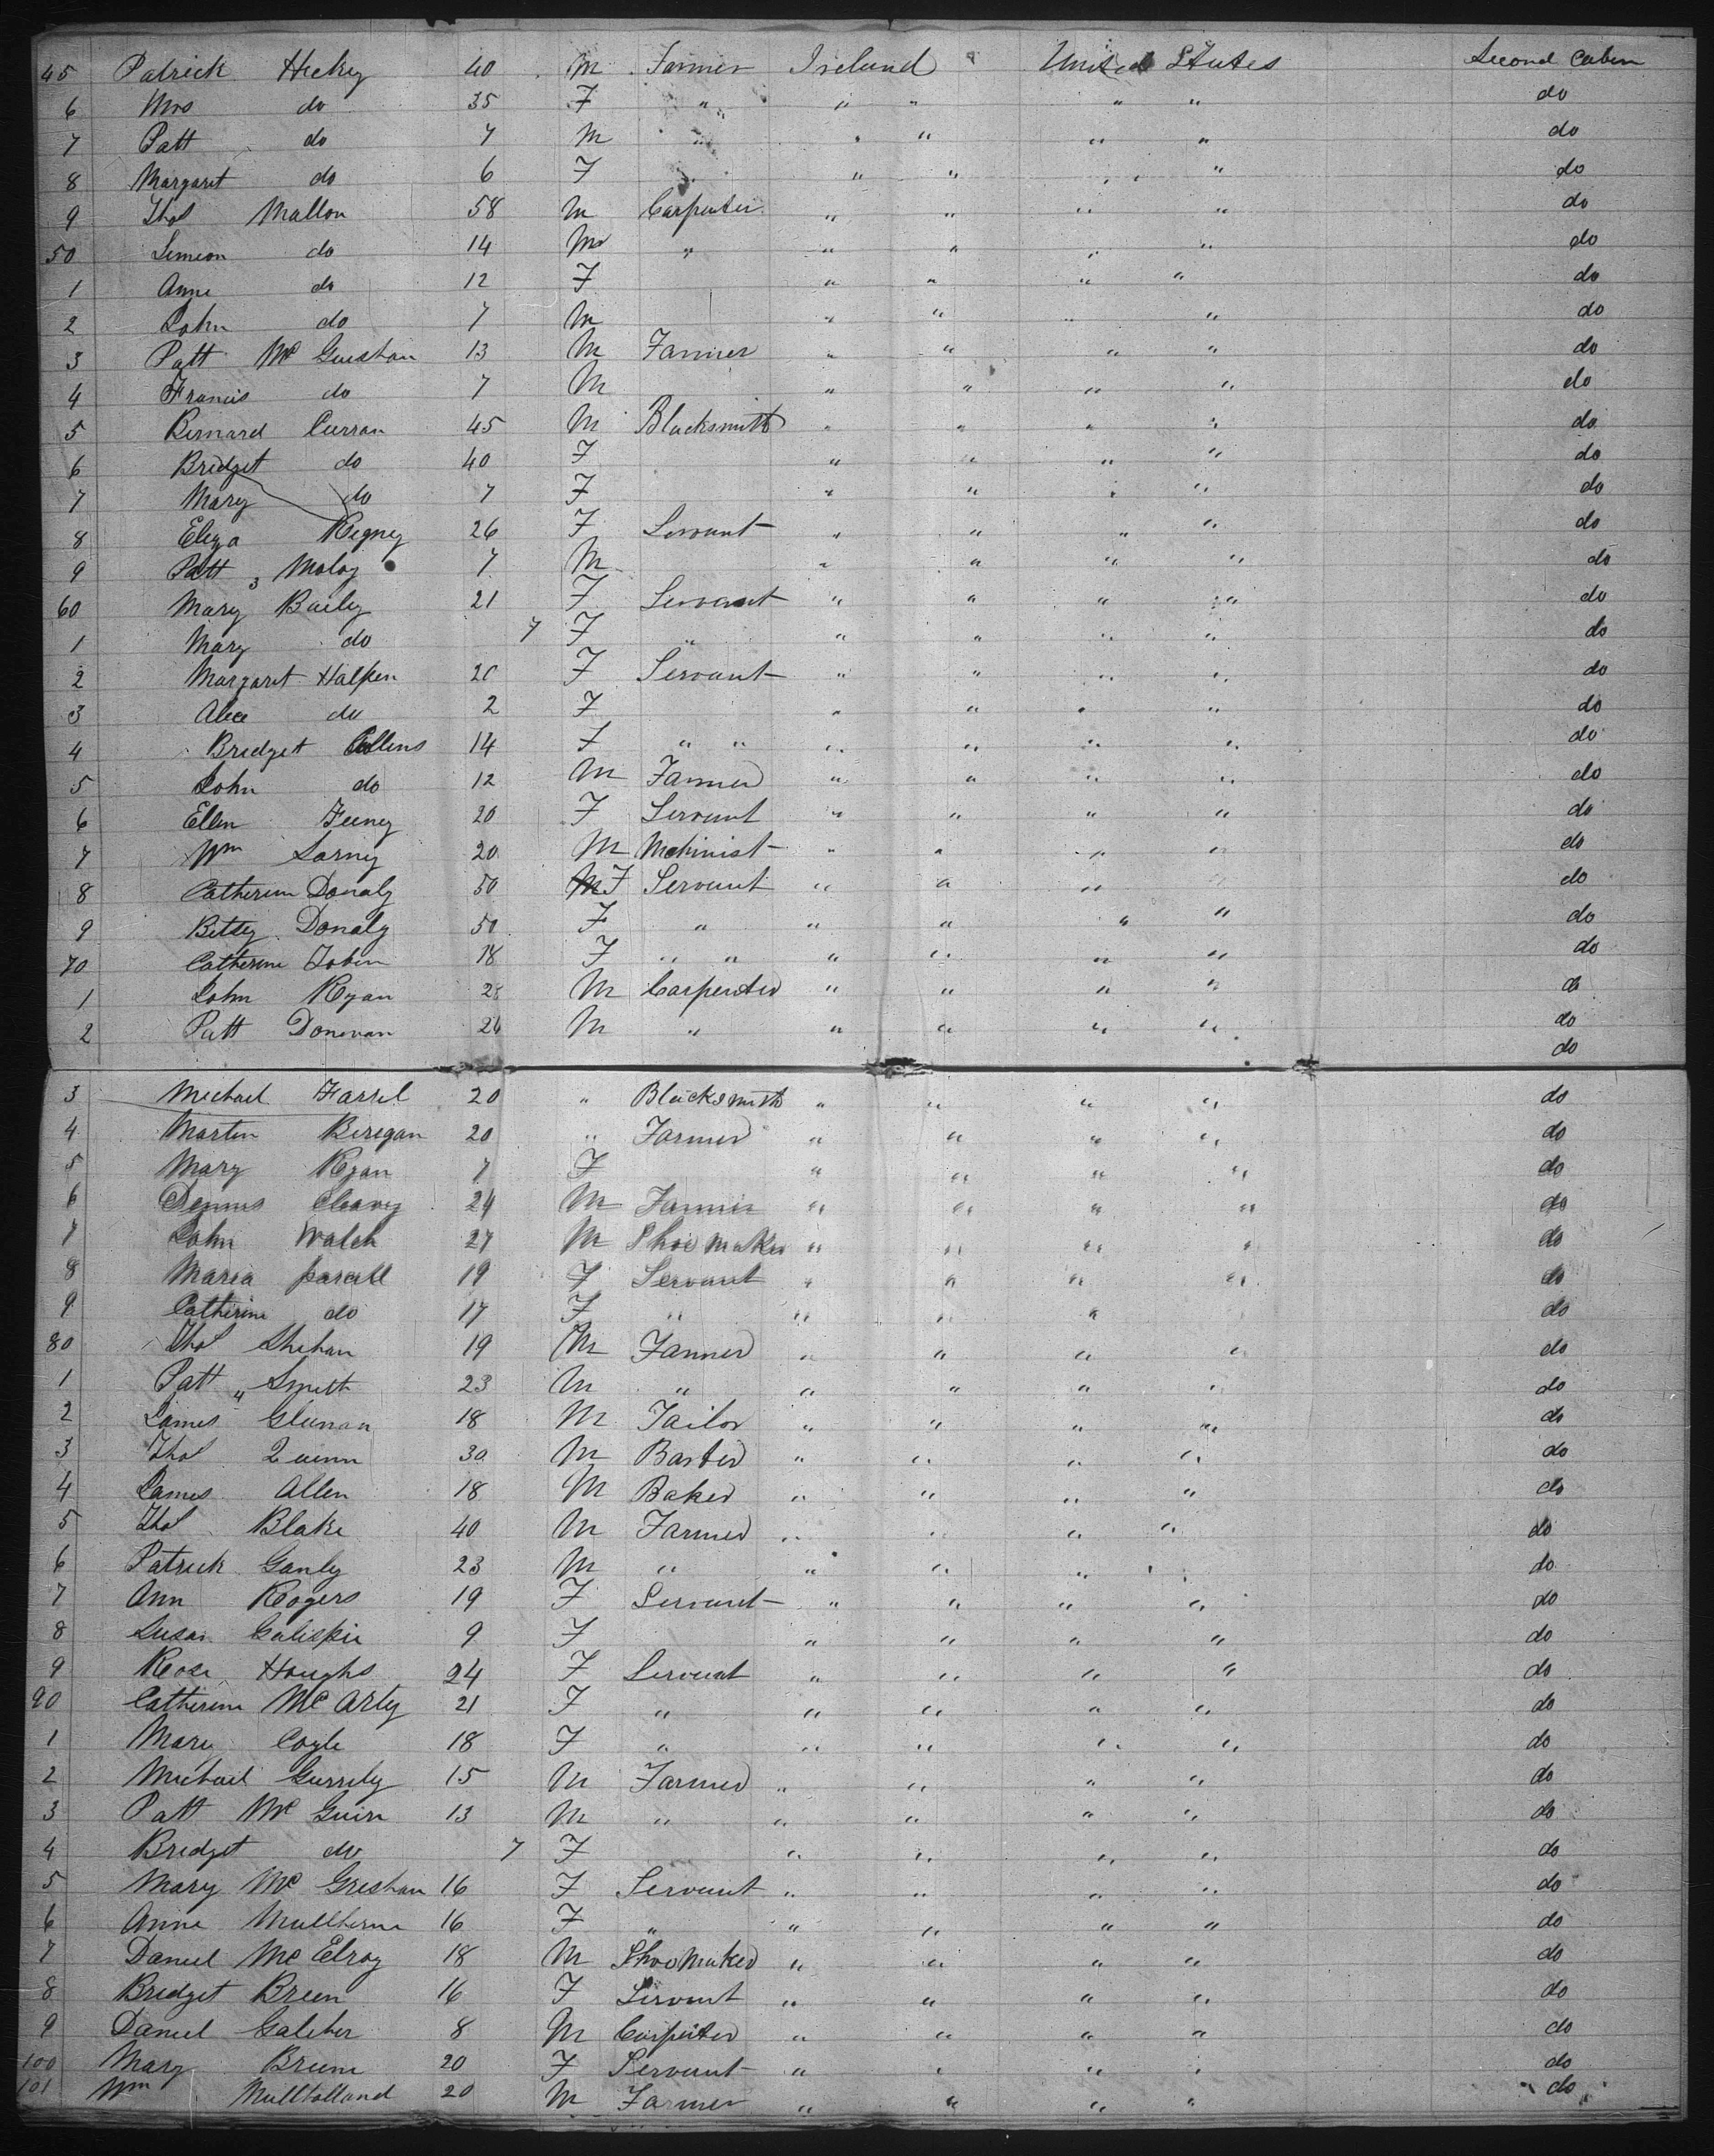 45 Patrick Hickey 40 M Farmer Ireland United States Second Cabin
6 Mrs do 35 F " " " " " do
7 Patt do 7 M " " " " " do
8 Margaret do 6 F " " " " do
9 Thos Mallon 58 M Carpenter " " " " do
50 Simeon do 14 M " " " " " do
1 Anne do 12 F " " " " do
2 John do 7 M " " " " do
3 Patt Mc Gueshan 13 M Farmer " " " " do
4 Francis do 7 M " " " " do
5 Bernard Curran 45 M Blacksmith " " " " do
6 Bridget do 40 F " " " " do
7 Mary do 7 F " " " " do
8 Eliza Regney 26 F Servant " " " do
9 Patt Maloy 7 M " " " " do
60 Mary Baily 21 F Servant " " " " do
1 Mary do 7 F " " " " " do
2 Margaret Halpen 20 F Servant " " " " do
3 Alice do 2 F " " " " do
4 Bridget Collins 14 F " " " " " " do
5 John do 12 M Farmer " " " " do
6 Ellen Feeney 20 F Servant " " " " do
7 Wm Larney 20 M Mchinist " " " " do
8 Catherine Donaly 50 F Servant " " " " do
9 Betsy Donaly 50 F " " " " " do
70 Catherine Tobin 18 F " " " " " " do
1 John Ryan 28 M Carpenter " " " " do
2 Patt Donovan 26 M " " " " " do
do
3 Michael Farrel 20 " Blacksmith " " " " do
4 Martin Beregan 20 " Farmer " " " " do
5 Mary Ryan 7 F " " " " do
6 Dennis Cleavey 24 M Farmer " " " " do
7 John Walch 27 M Shoe Maker " " " " do
8 Maria parcell 19 F Servant " " " " do
9 Catherine do 17 F " " " " do
80 Thos Shehan 19 M Farmer " " " " do
1 Patt Smith 23 M " " " " " do
2 James Glenan 18 M Tailor " " " " do
3 Thos Quinn 30 M Barber " " " " do
4 James Allen 18 M Baker " " " " do
5 Thos Blake 40 M Farmer " " " " do
6 Patrick Ganly 23 M " " " " " do
7 Ann Rogers 19 F Servant " " " " do
8 Susan Galispie 9 F " " " " do
9 Rose Houghs 24 F Servant " " " " do
90 Catherine Mc Arty 21 F " " " " " do
1 Mary Coyle 18 F " " " " " do
2 Michael Gurrely 15 M Farmer " " " " do
3 Patt Mc Guirn 13 M " " " " " do
4 Bridget do 7 F " " " " do
5 Mary Mc Greshan 16 F Servant " " " " do
6 Anne Mullherne 16 F " " " " " do
7 Daniel Mc Elroy 18 M Shoo Maker " " " " do
8 Bridget Breen 16 F Servant " " " " do
9 Daniel Galeher 8 M Carpenter " " " " do
100 Mary Brune 20 F Servant " " " " do
101 Wm Mulltolland 20 M Farmer " " " " do